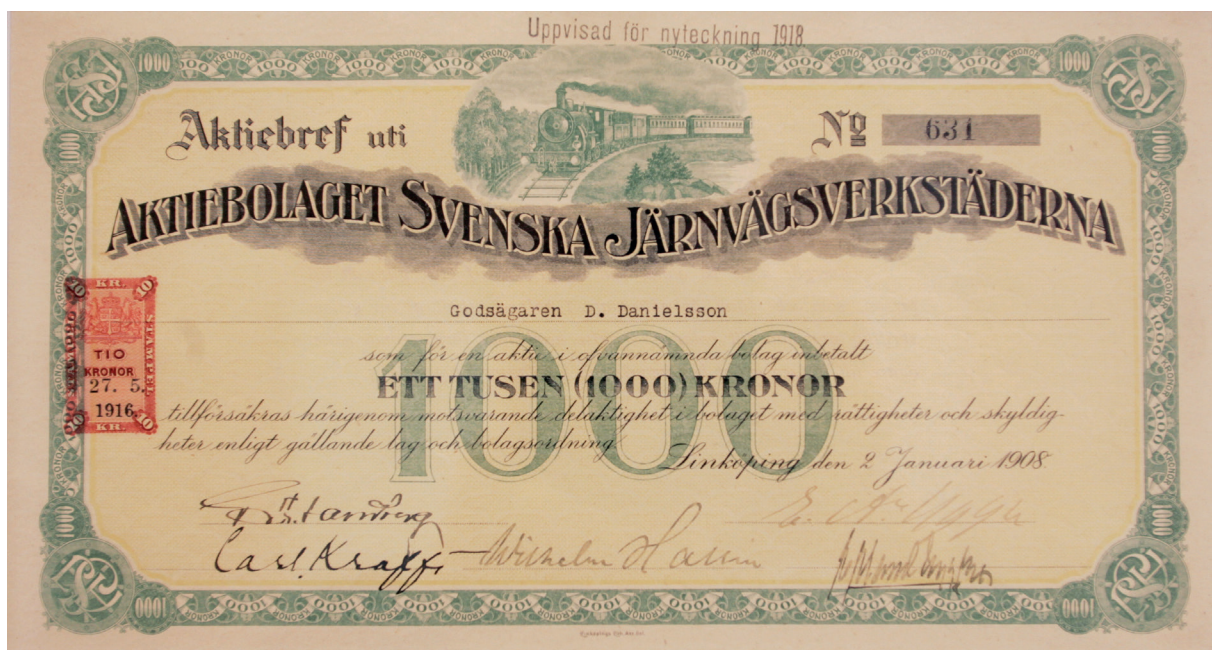 Uppvisad för nyteckning 1918.
Aktiebref uti
No 631
AKTIEBOLAGET SVENSKA JÄRNVÄGSVERKSTÄDERNA
KR.
10 10
STAMPEL
TIO
KRONOR
27. 5.
1916.
10 10
KR.
Godsägaren D. Danielsson
1000
som för en aktie i ofvannämnda bolag inbetalt
ETT TUSEN (1000) KRONOR
tillförsäkras härigenom motsvarande delaktighet i bolaget med rättigheter och skyldig-
heter enligt gällande lag och bolagsordning.
Linköping den 2 Januari 1908.
Carl Krafft
Wilhelm
1000 KRONOR